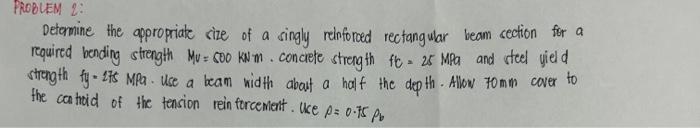 PROBLEM 2:
Determine the appropriate size of a singly reinforced rectangular beam section for a
required bending strength Mu = 500 KN·m. concrete strength fc = 25 MPa and steel yield
strength fy = 275 MPa. Use a beam width about a half the depth. Allow 70mm cover to
the centroid of the tension reinforcement. Use ρ = 0.75 ρb